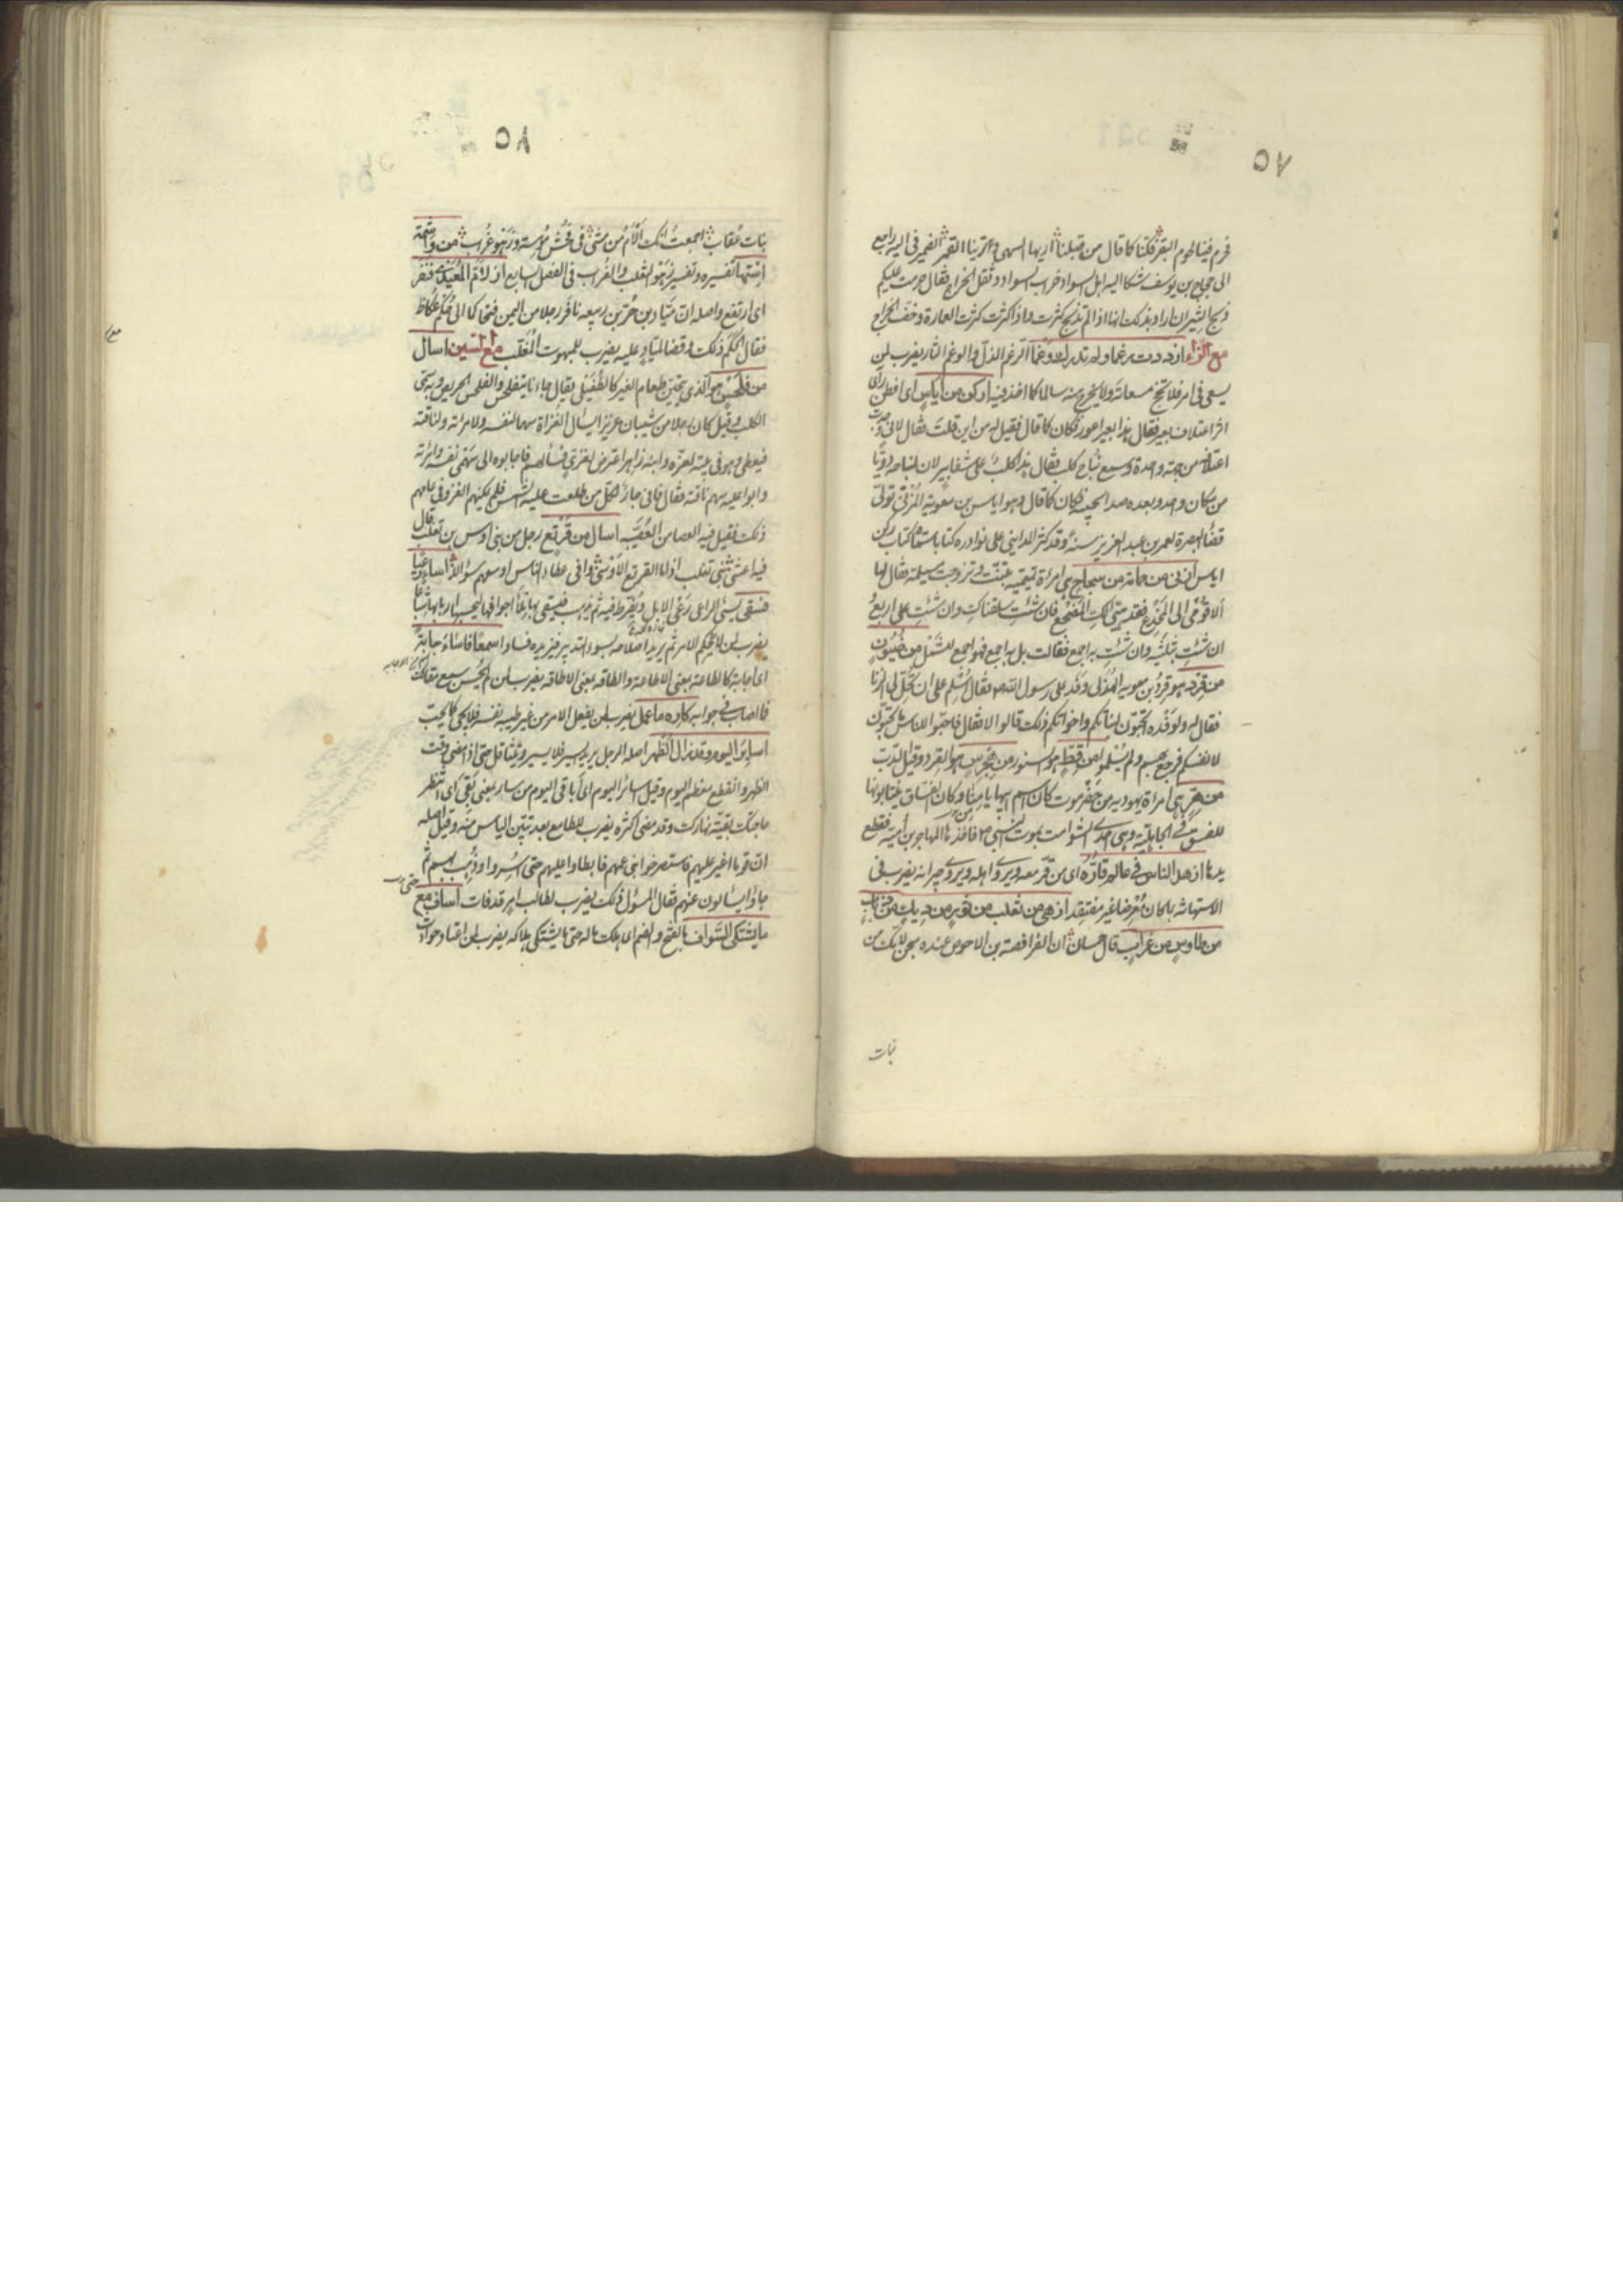 ٥٧
فحرم فينا لحوم البقر فكنا كما قال من قبلنا اريها السهى وترينا القمر الضمير في اليه راجع
الى حجاج بن يوسف شكا اليه اهل السواد خراب السواد وثقل الخراج فقال حرمت عليكم
ذبح الثيران اراد بذلك انها اذا لم تذبح كثرت واذا كثرت كثرت العمارة وخف الخراج
مع الزاء ازددت رغما ولم تدرك وغما الرغم الذل والوغم الثار يضرب لمن
يسعى في امر فلا ينجح مسعاته ولا يخرج منه سالما كما اخذ فيه ازكن من اياس اى افطن راى
اثر اعتلاف بعير فقال هذا بعير اعور فكان كما قال فقيل له من اين قلت فقال لانى وجدت
اعتلافه من جهة واحدة وسمع نباح كلب فقال هذا كلب على شفا بير لان لنباحه دويا
من مكان واحد وبعده صدا يجيبه فكان كما قال وهو اياس بن معوية المزني تولى
قضا البصرة لعمر بن عبد العزيز سنة وقد كثر المدايني على نوادره كتابا سماه كتاب زكن
اياس ازنى من سجاح هى امراة تميمية تنبت وتزوجت مسيلمة فقال لها
الا قومى الى المخدع فقد هيى لك المضجع فان شئت سلقناك وان شئت على اربع
ان شئت بثلثيه وان شئت به اجمع فقالت بل به اجمع فهو اجمع للشمل من ضيون
من قرد هو قرد بن معوية الهذلى وفد على رسول الله فقال اسلم على ان تحل لى الزنا
فقال له ولوفده اتحبون لبناتكم واخواتكم ذلك قالوا لا فقال فاحبوا للناس ما تحبون
لانفسكم فرجع بهم ولم يسلموا من قط هو السنور من هجرس هو القرد وقيل الدب
من هر هى امراة يهودية من حضرموت كان اسم ابيها يامنا وكان الفساق ينتابونها
للفسق في الجاهلية وهى احدى الشوامت بموت النبي فاخذها المهاجر بن امية فقطع
يدها ازهد الناس في عالم قارّه اى من قر معه ويرى واهله ويرى وجيرانه يضرب في
الاستهانة بالحان معرضا غير مفتقد ازهى من ثعلب من ثور من ديك من ذباب
من طاوس من غراب قال حسان ان الفرافصة بن الاحوص عنده شجن لامك من
بنات
٥٨
بنات عقاب اجمعت انك الام من مشى في فحش مومسة وزهو غراب من واشمة
استها تفسيره وتفسير زهو الثعلب والغراب في الفصل السابع ازلام المعيدى فنفر
اى ارتفع واصله ان مياد بن حر بن ربيعه نافر رجلا من اليمن فتحاكما الى حكم عكاظ
فقال الحكم ذلك وقضا لمياد عليه يضرب للمبهوت المغلب مع السين اسال
من فلحس هو الذى يتحين طعام الغير كالطفيلى يقال جاءنا يتفلحس والفلحس الحريص وبه سمى
الكلب وقيل كان رجلا من شيبان عزيزا يسال الغزاة سهما لنفسه ولامراته ولناقته
فيعطى وهو فى بيته لعزه وابنه زاهر اعترض لغزي فسألهم فاجابوه الى سهمى نفسه وامرته
وابوا عليه سهم ناقته فقال فانى جار لكل من طلعت عليه الشمس فلم يمكنهم الغزو في عامهم
ذلك فقيل فيه العصا من العصية اسال من قرثع رجل من بنى اوس بن تغلب قال
فيه اعشى بنى تغلب اذا ما القرثع الاوسى وافى عطاء الناس اوسعهم سؤالا اساء رعيا
فسقى يسئ الراعى رعى الابل ويفرط فيه ثم يذهب فيسقى بها ليملا اجوافها ليحسب اربابها شباعا
يضرب لمن لا يحكم الامر ثم يريد اصلاحه بسوء التدبير فيزيده فسادا اساء سمعا فاساء جابة
اى اجابة كالطاعة بمعنى الاطاعة والطاقة بمعنى الاطاقة يضرب لمن لم يحسن سمع مقالك
فما اصاب في جوابه اساء كاره ما عمل يضرب لمن يفعل الامر من غير طيبة نفسه فلا يجئ كما يحب
اسائر اليوم وقد زال الظهر اصله الرجل يريد السير فلا يسير ويتثاقل حتى اذا مضى وقت
الظهر وانقطع معظم اليوم وقيل سائر اليوم اى باقى اليوم من سار بمعنى بقى اى انتظر
ما جئت بقية نهارك وقد مضى اكثره يضرب للطامع بعد تبين الياس منه وقيل اصله
ان قوما اغير عليهم فاستصرخوا بنى عمهم فابطاوا عليهم حتى اسروا وذهب بهم ثم
جاؤا يسالون عنهم فقال المسؤل ذلك يضرب لطالب امر قد فات اساف حتى
ما يشتكى السواف بالفتح والضم اى هلك ماله حتى ما يشتكى هلاكه يضرب لمن اعتاد حوادث